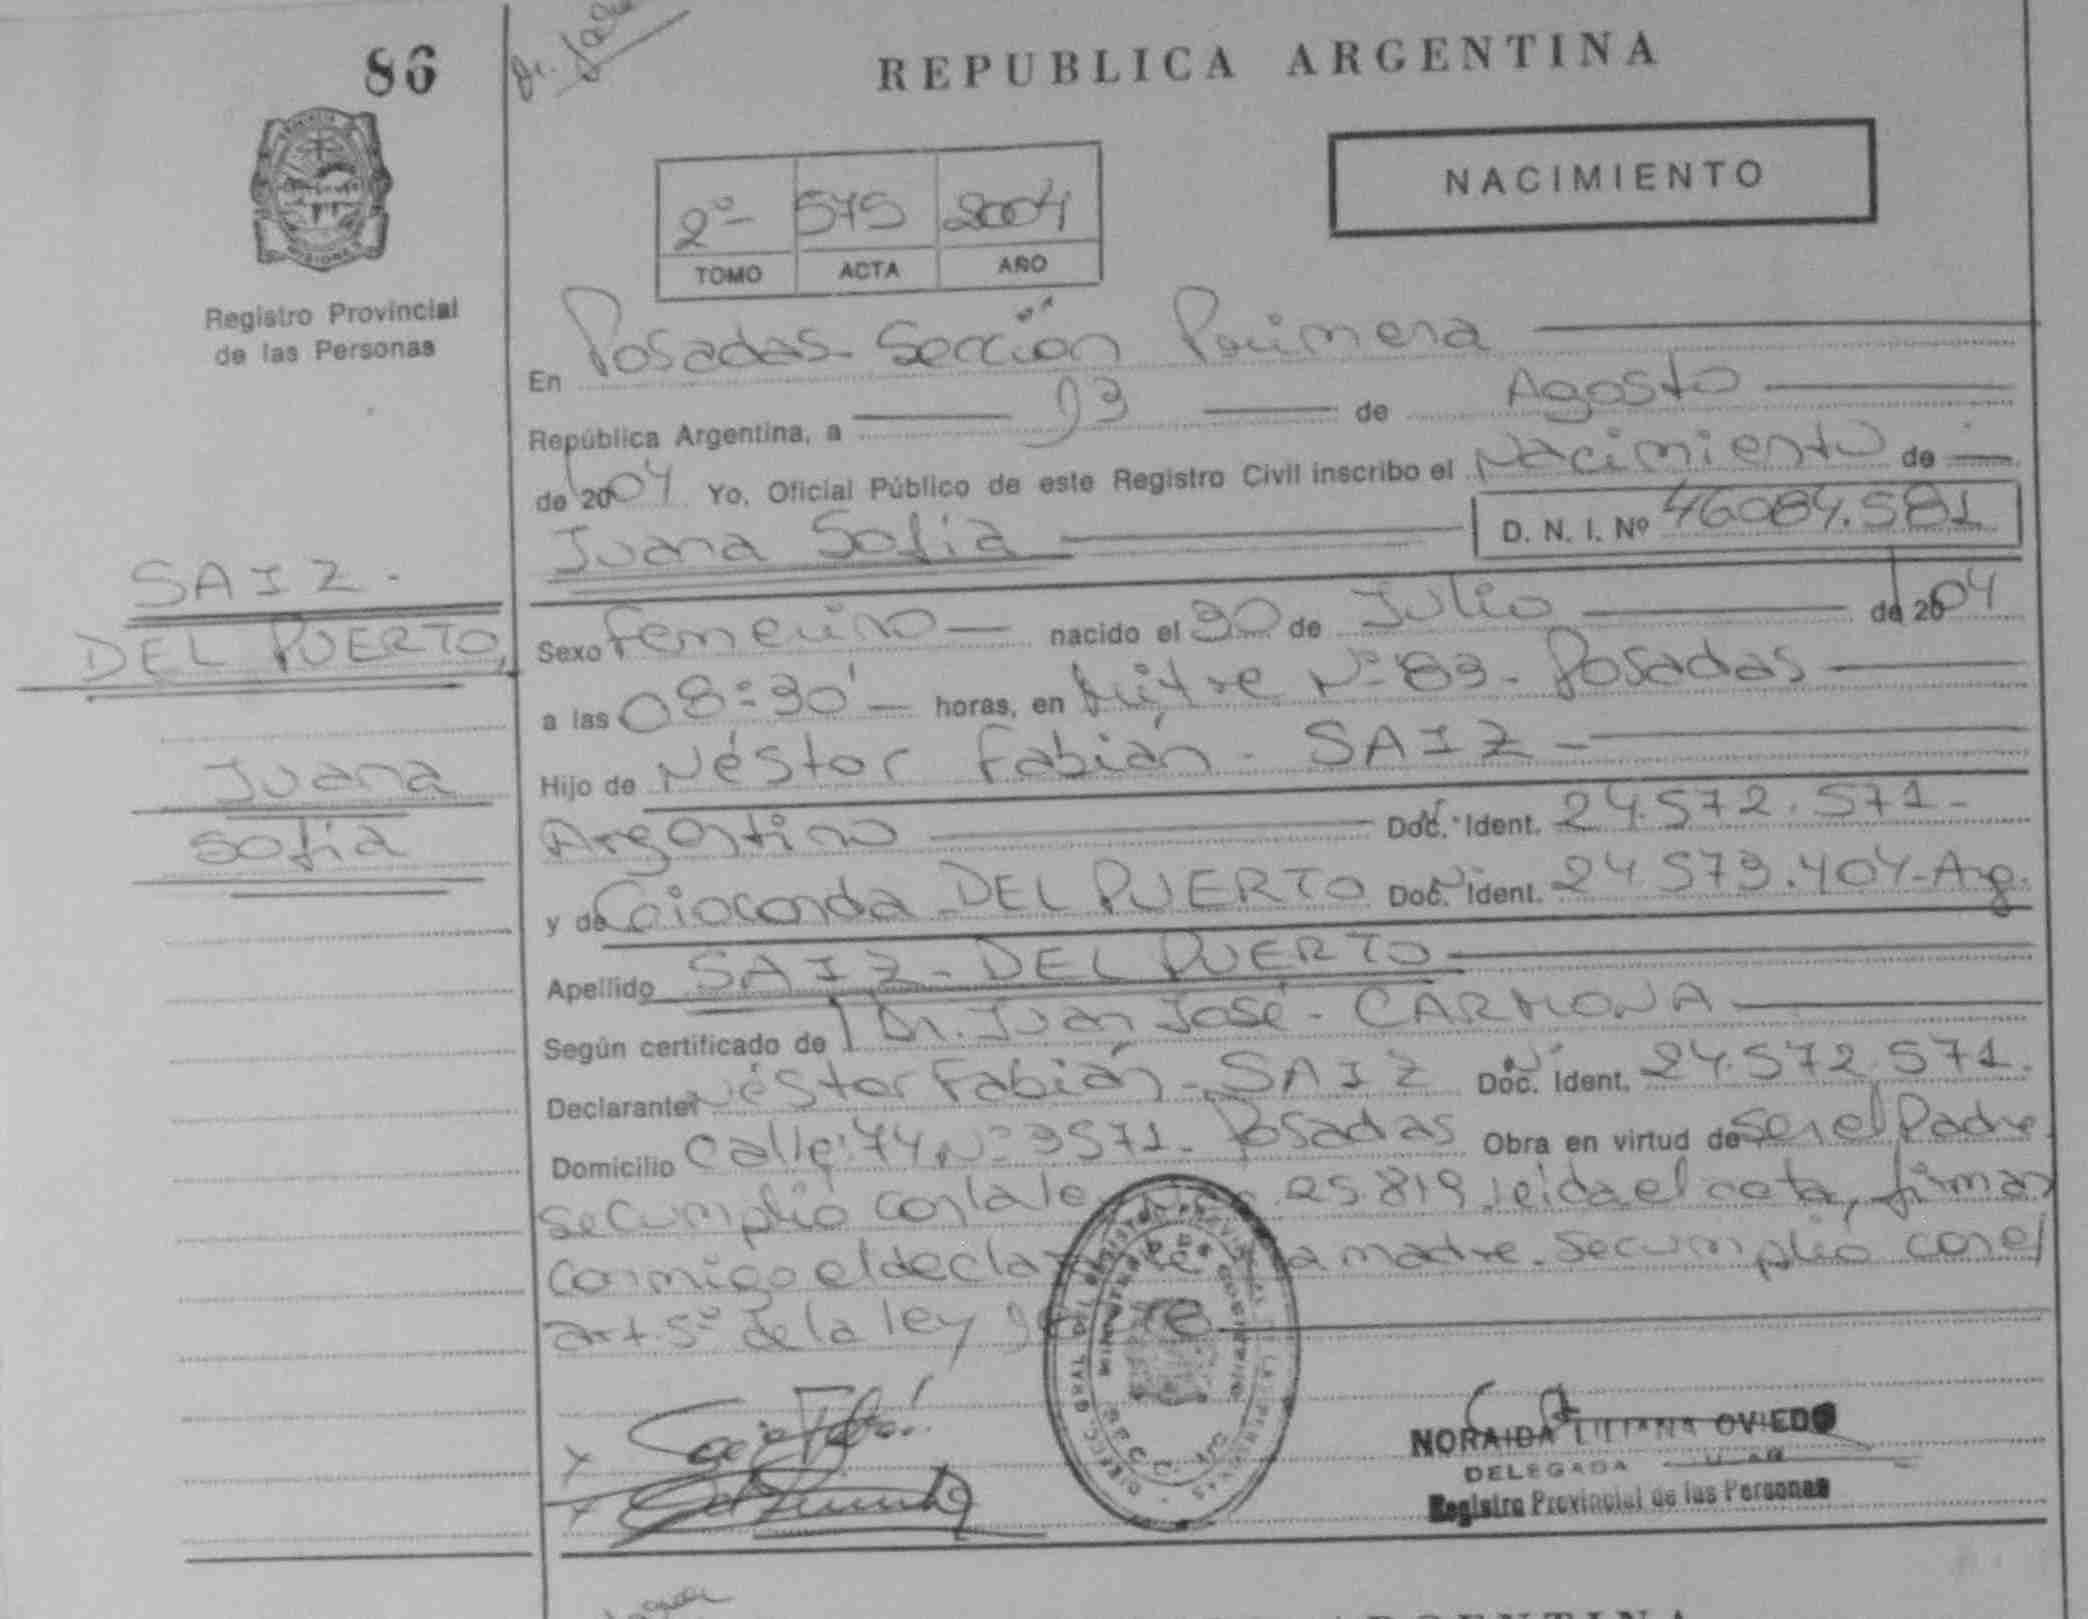 86
REPUBLICA ARGENTINA
Registro Provincial
de las Personas
2º 575 2004
TOMO ACTA AÑO
NACIMIENTO
En Posadas - Sección Primera
República Argentina, a 03 de Agosto
de 2004 Yo, Oficial Público de este Registro Civil inscribo el Nacimiento de
Juana Sofia D. N. I. Nº 46084.581
SAIZ -
DEL PUERTO,
Juana
Sofia
Sexo Femenino nacido el 30 de Julio de 2004
a las 08:30' horas, en Mitre Nº 83 - Posadas
Hijo de Néstor Fabián - SAIZ -
Argentino Doc. Ident. 24.572.571-
y de Gioconda DEL PUERTO Doc. Ident. 24.573.404-Arg.
Apellido SAIZ - DEL PUERTO
Según certificado de Dr. Juan José - CARMONA
Declarante Néstor Fabián - SAIZ Doc. Ident. 24.572.571.
Domicilio Calle: 74 Nº 3571 - Posadas Obra en virtud de ser el Padre
se cumplió con la 25.819, leida el acta, firman
conmigo el la madre. Se cumplió con el
art. 5º de la ley
NORAIDA LILIANA OVIEDO
DELEGADA
Registro Provincial de las Personas